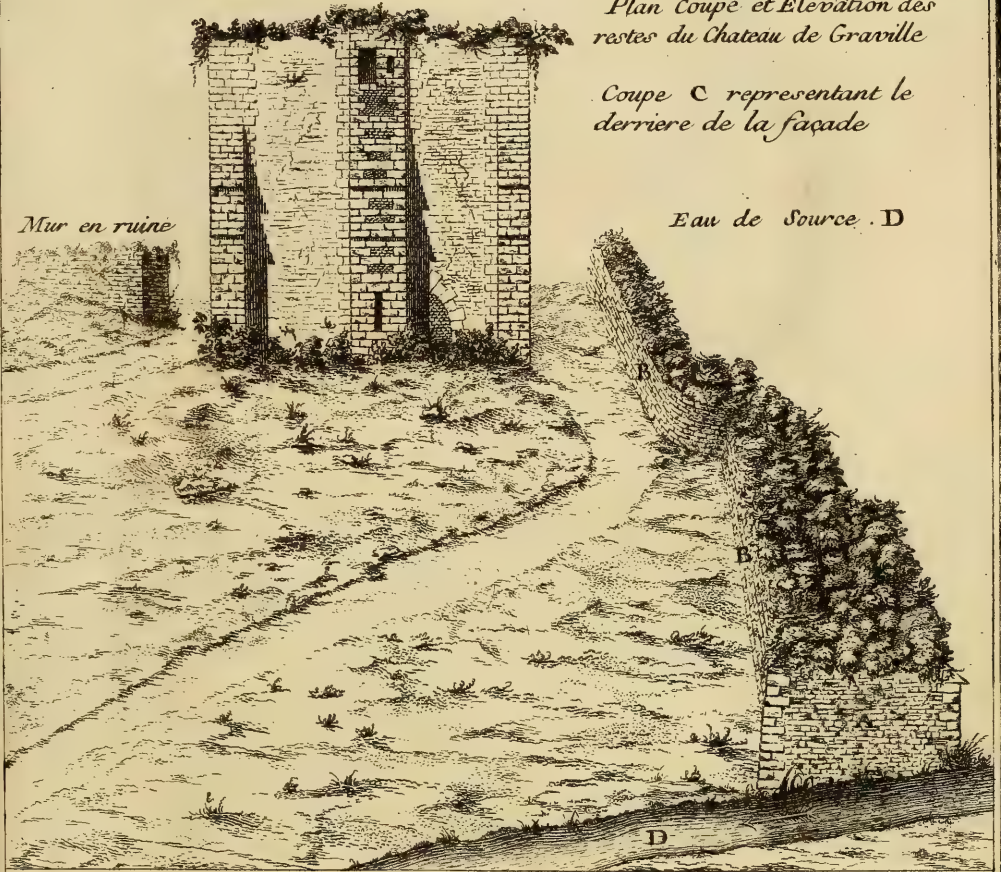 Plan Coupe et Elevation des
restes du Chateau de Graville
Coupe C representant le
derriere de la façade
Mur en ruine
Eau de Source . D
B
B
D